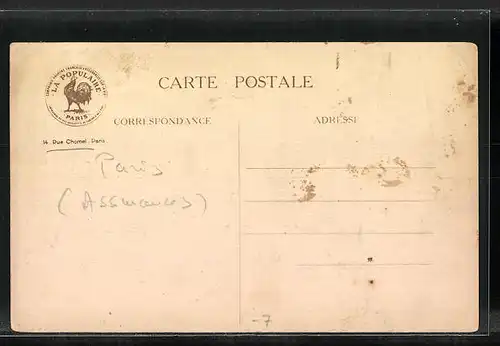 LA POPULAIRE
PARIS
14 Rue Chomel - Paris
CARTE POSTALE
CORRESPONDANCE
ADRESSE
Paris
(Assurances)
-7